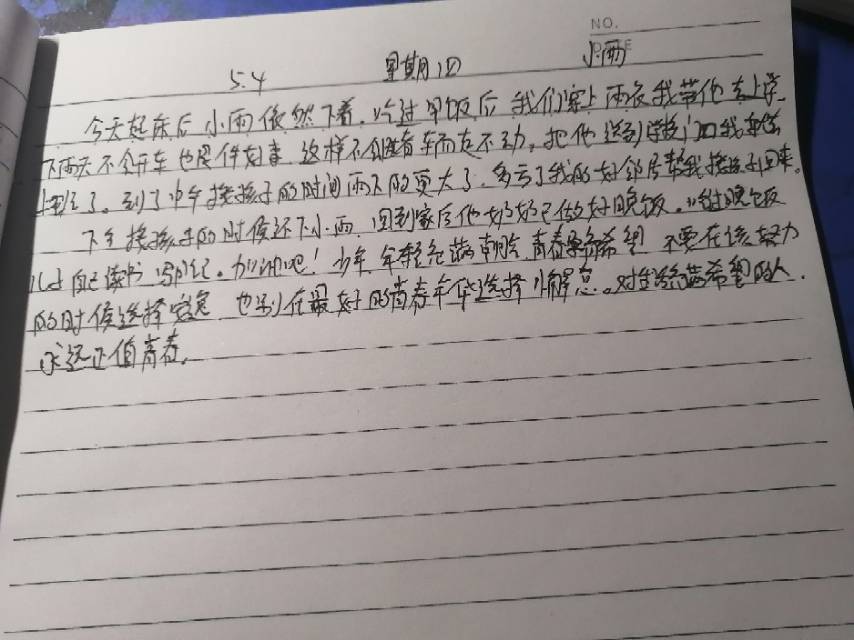 NO.
5.4 星期四 小雨
今天起床后小雨依然下着.吃过早饭后我们穿上雨衣我带他去上学.
下雨天不会开车也是件好事 这样不会堵着车而走不动。把他送到学校门口我
上班了。到了中午接孩子的时间雨下的更大了.多亏了我的好邻居帮我接孩子回来。
下午接孩子的时候还下小雨 回到家后他奶奶已做好晚饭。吃过晚饭
自己读书 写日记。加油吧！少年 年轻充满朝气 青春孕育希望 不要在该努力
的时候选择安定 也别在最好的青春年华选择懈怠。对生活充满希望的人.
永远正值青春.